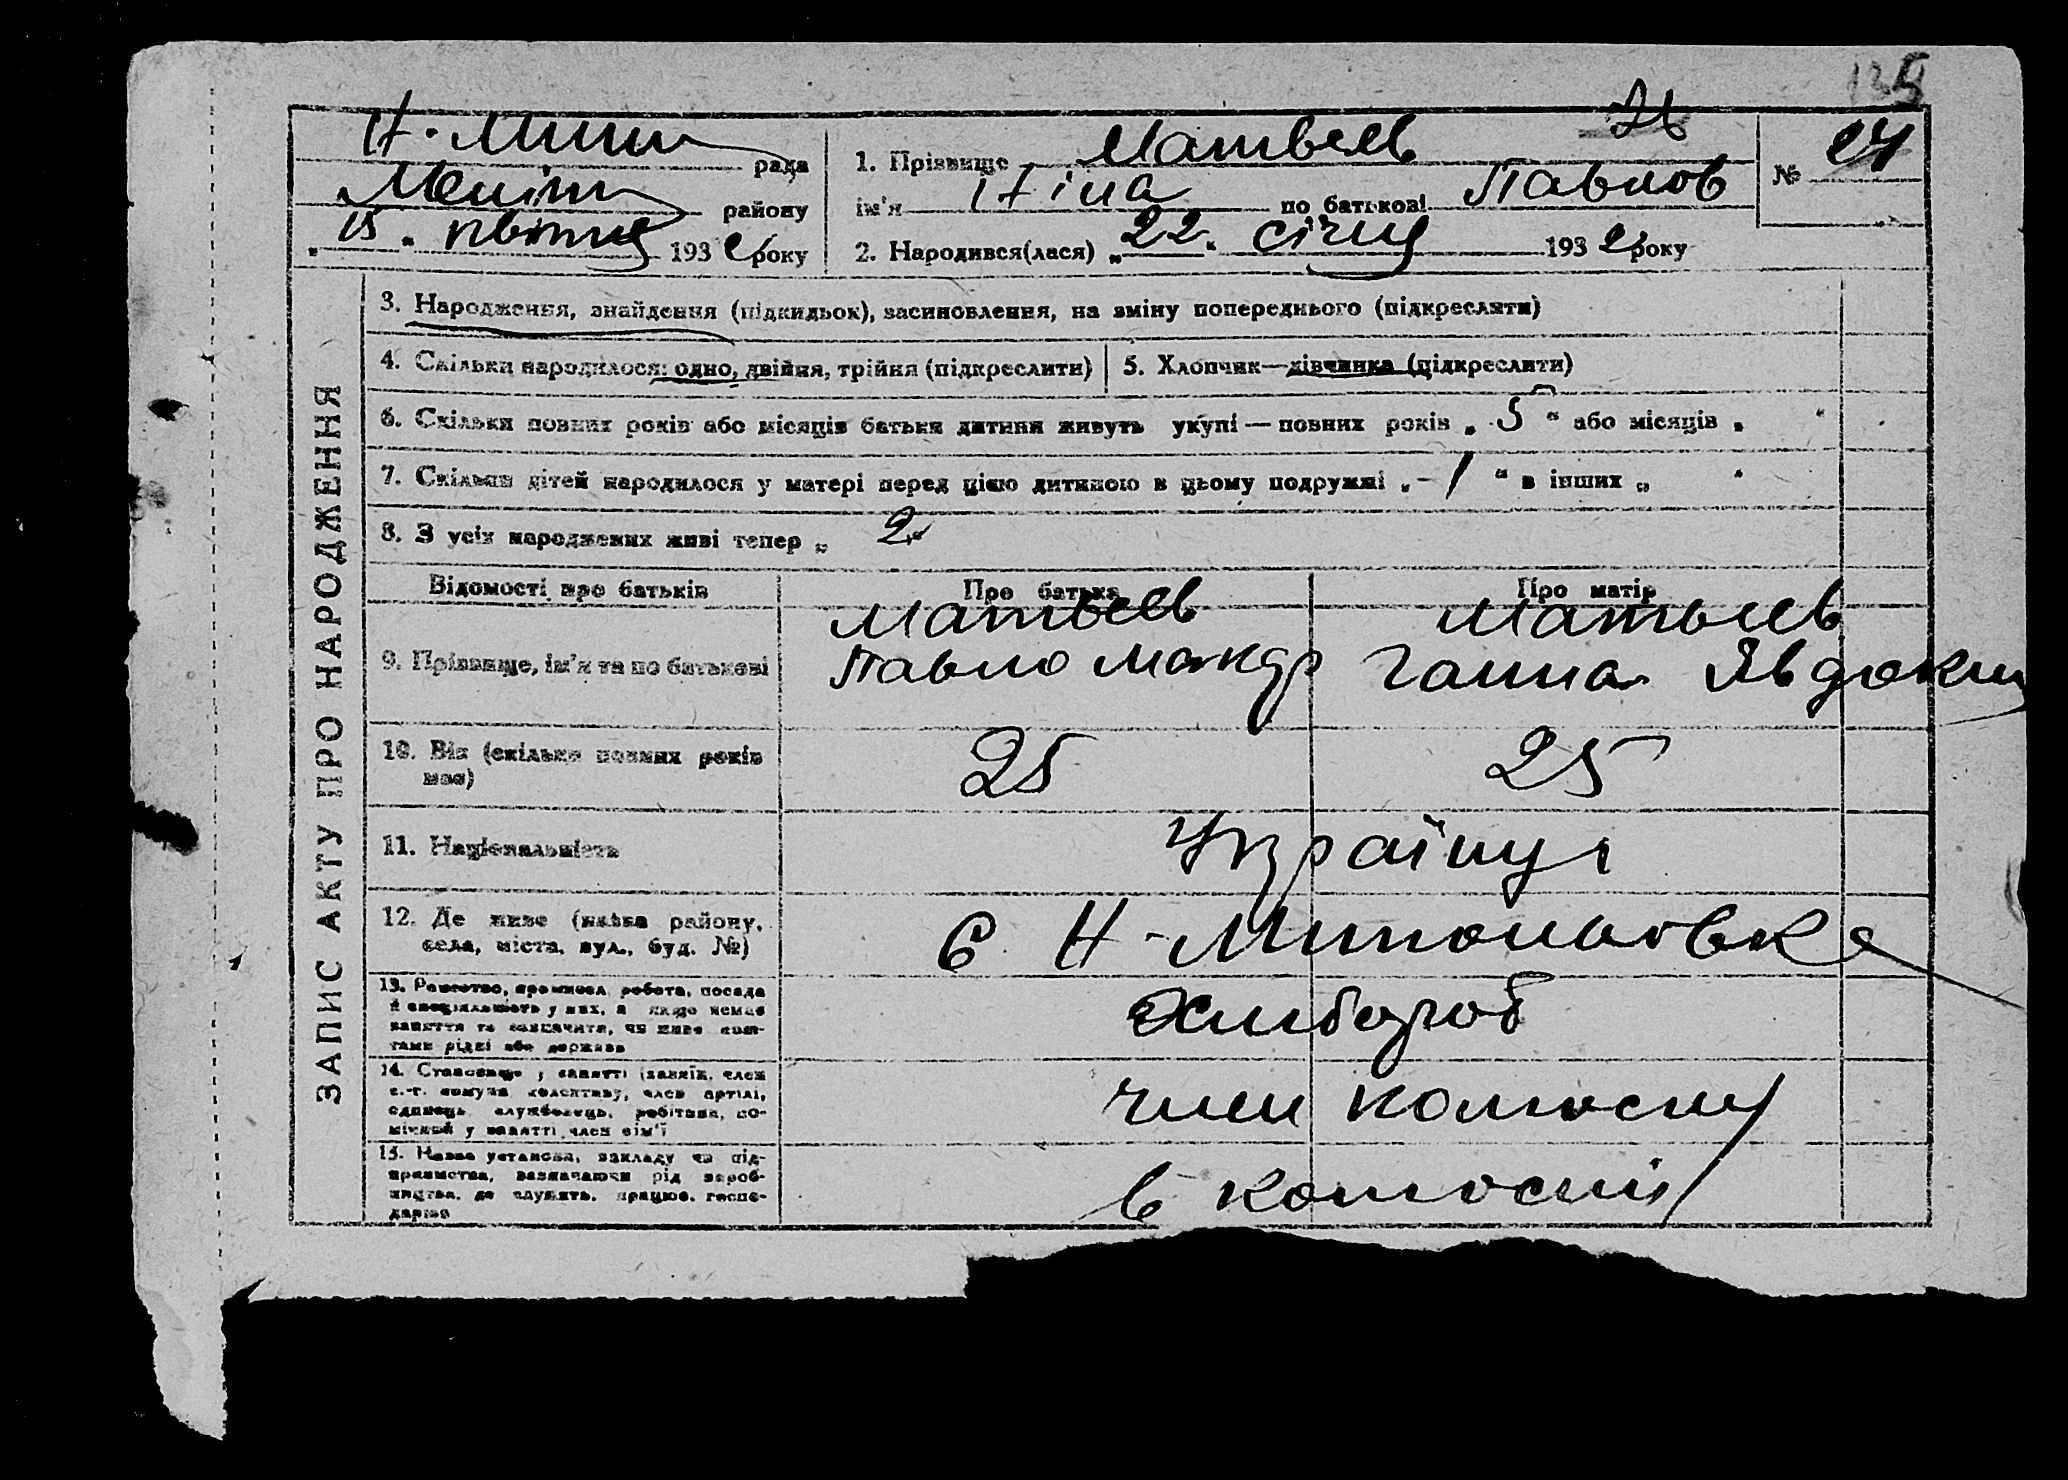 139
Н. Мики рада
Меліт району
"15" квітня 1932 року
1. Прізвище Матвеев
ім'я Ніна по батькові Павлов
2. Народився(лася) "22" січня 1932 року
№ 24
ЗАПИС АКТУ ПРО НАРОДЖЕННЯ
3. Народження, знайдення (підкидьок), засиновлення, на зміну попереднього (підкреслити)
4. Скільки народилося: одно, двійня, трійня (підкреслити)
5. Хлопчик—дівчинка (підкреслити)
6. Скільки повних років або місяців батьки дитини живуть укупі — повних років „ 5 " або місяців „ "
7. Скільки дітей народилося у матері перед цією дитиною в цьому подружжі „ - 1 " в інших „ "
8. З усіх народжених живі тепер „ 2 "
Відомості про батьків
Про батька
Про матір
9. Прізвище, ім'я та по батькові
Матвеев
Павло Макар
Матвеев
Ганна Явдоким
10. Вік (скільки повних років має)
25
25
11. Національність
Українці
12. Де живе (назва району,
села, міста, вул., буд. №)
с Н-Миколаовка
13. Ремество, промисел, робота, посада
й спеціяльність у них, а якщо немає
заняття то зазначити, чи живе кош-
тами рідні або держави
Хлибороб
14. Становище у занятті (хазяїн, член
с.-г. комуни колективу, член артілі,
одинець, службовець, робітник, по-
мічний у занятті член сім'ї
член колгоспу
15. Назва установи, закладу чи під-
приємства, зазначаючи рід вироб-
ництва, де служить, працює, госпо-
дарює
в колгоспі